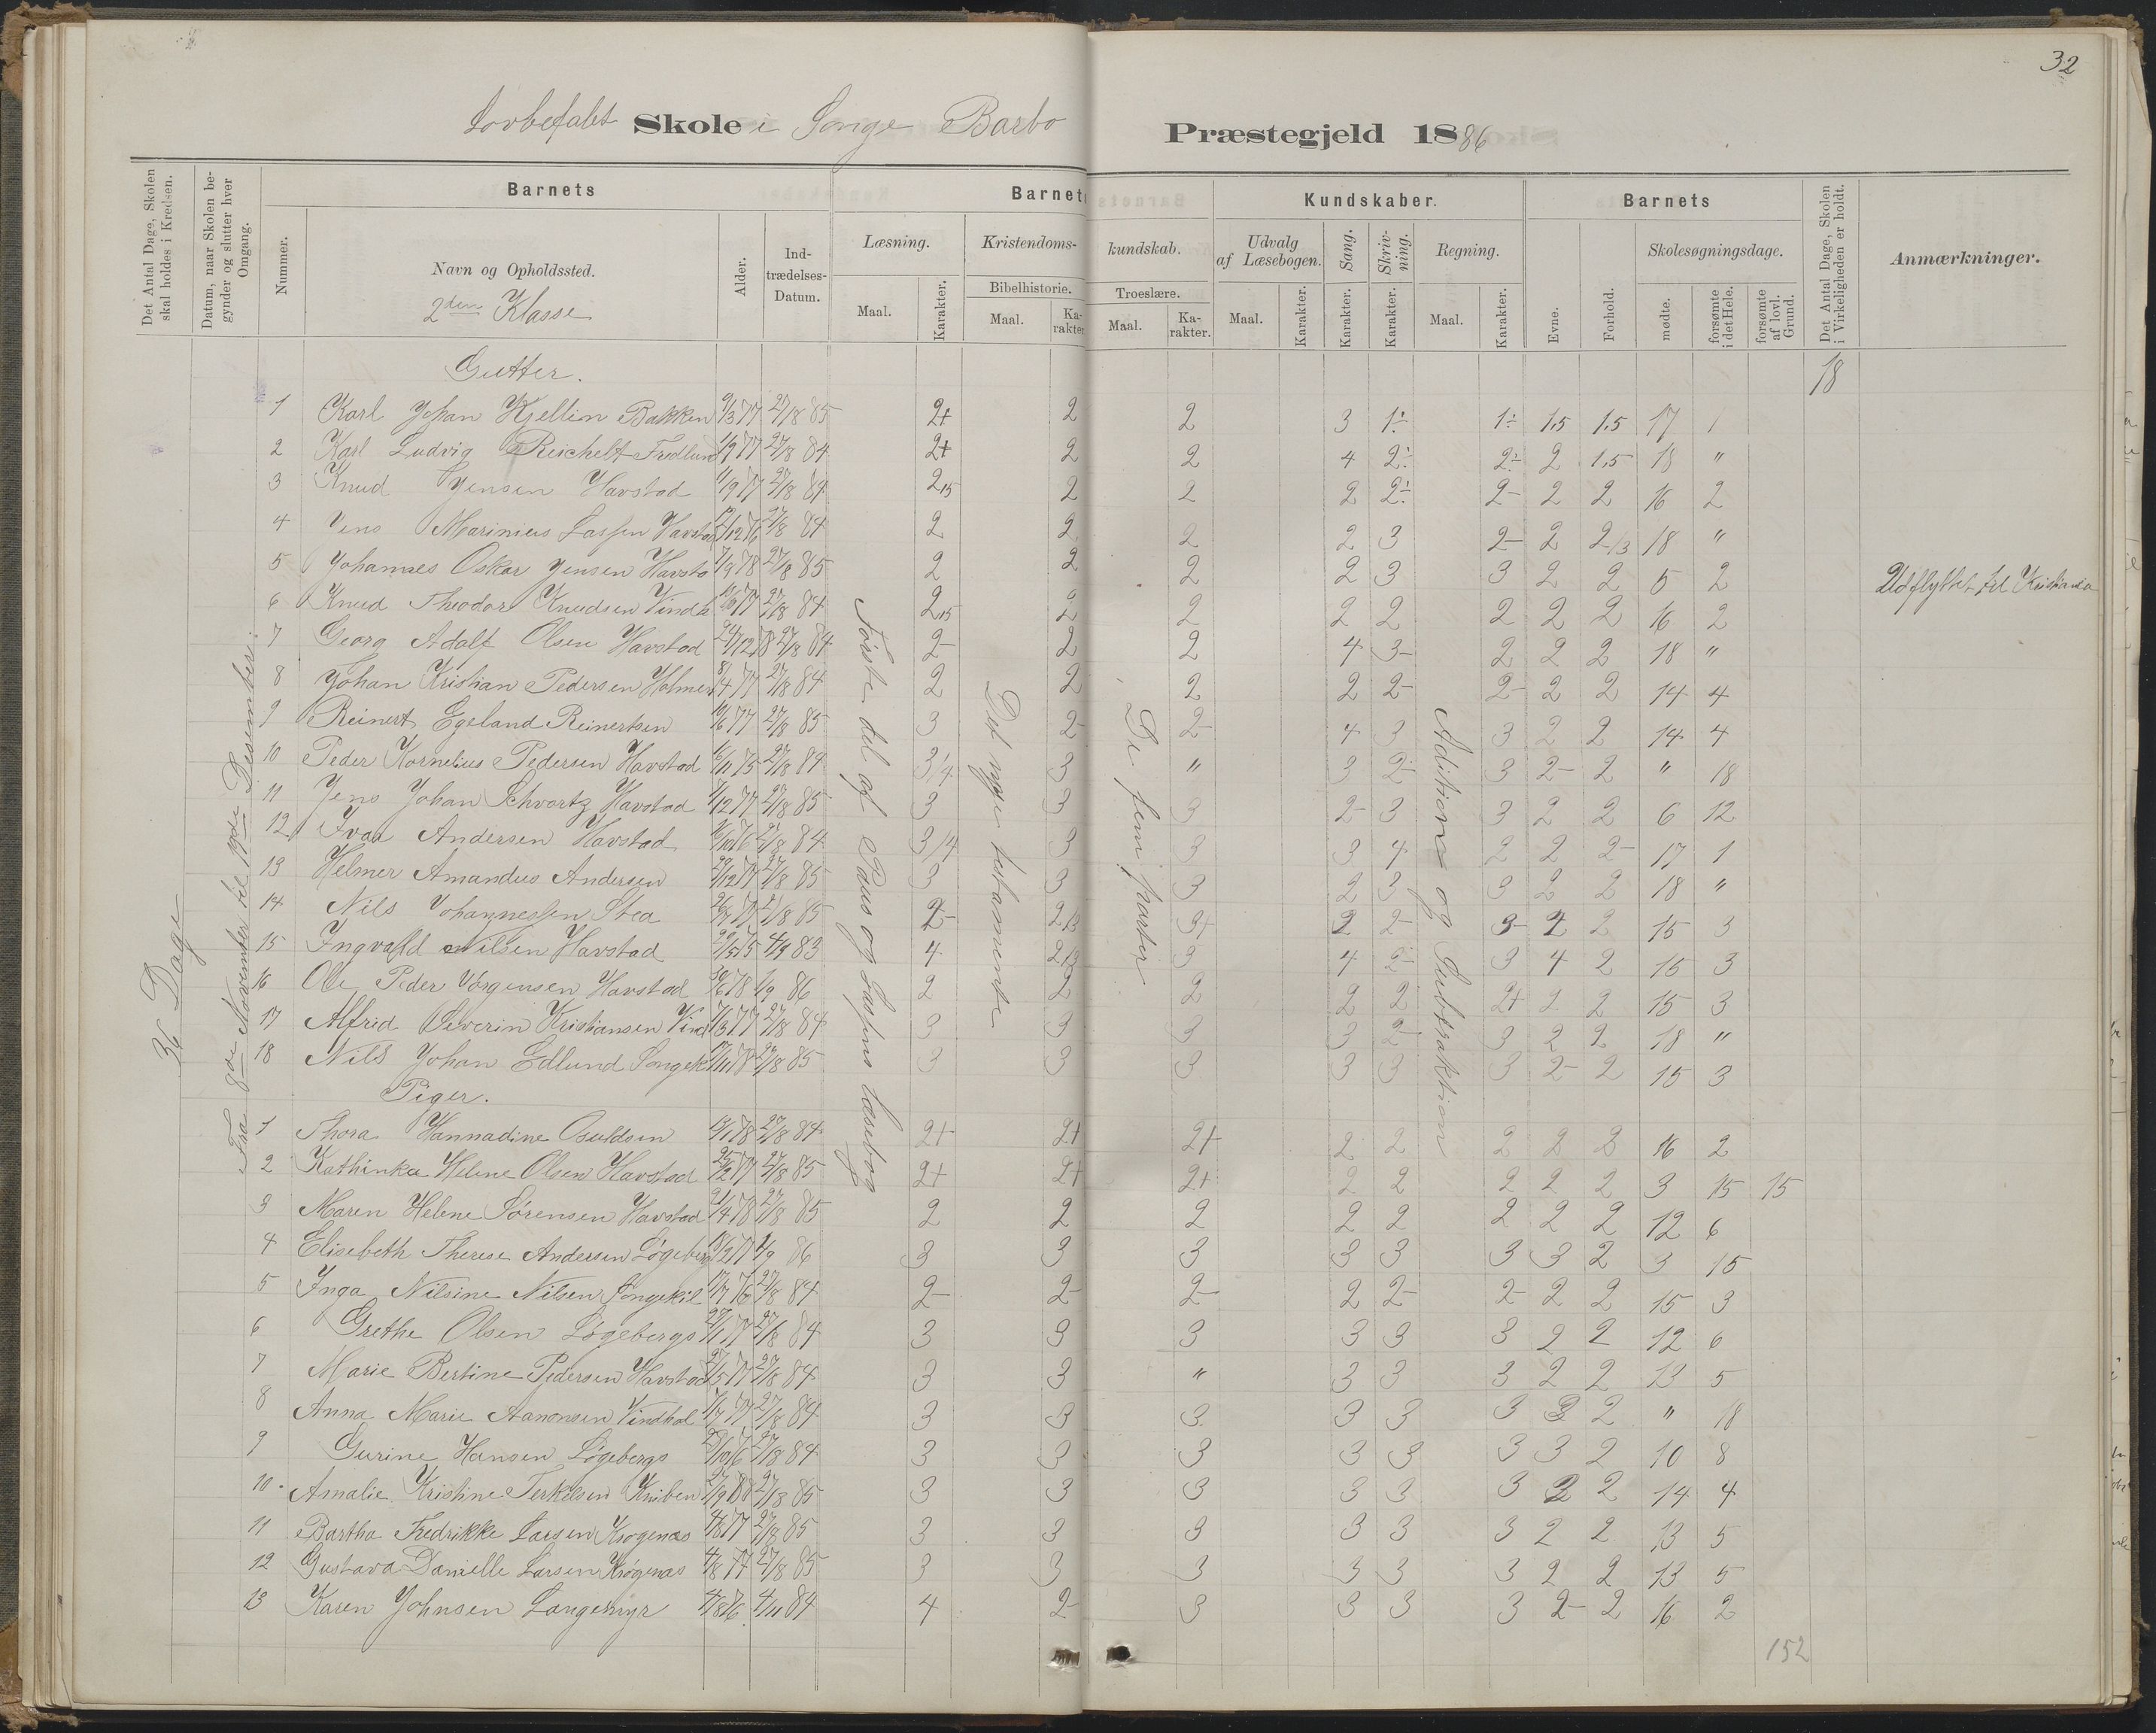 32
Lovbefalet Skole i Songe Barbo Præstegjeld 1886
Det Antal Dage, Skolen skal holdes i Kredsen.
Datum, naar Skolen begynder og slutter hver Omgang.
Barnets
Nummer.
Navn og Opholdssted.
2den Klasse
Alder.
Indtrædelses-Datum.
Barnets
Læsning.
Maal.
Karakter.
Kristendoms-
kundskab.
Bibelhistorie.
Maal.
Karakter.
Troeslære.
Maal.
Karakter.
Kundskaber.
Udvalg af Læsebogen.
Maal.
Karakter.
Sang.
Karakter.
Skrivning.
Karakter.
Regning.
Maal.
Karakter.
Barnets
Evne.
Forhold.
Skolesøgningsdage.
mødte.
forsømte i det Hele.
forsømte af lovl. Grund.
Det Antal Dage, Skolen i Virkeligheden er holdt.
Anmærkninger.
36 Dage
Fra 8de November til 19de Desember.
Første del af Paus og Lassens læsebog
Det nye testamente
De fem parter
Adition og Subtraktion
18
Gutter.
1 Karl Johan Kjellin Bakken 9/3 77 27/8 85 2+ 2 2 3 1÷ 1÷ 1,5 1,5 17 1
2 Karl Ludvig Reichelt Fredlund 1/9 77 27/8 84 2+ 2 2 4 2÷ 2÷ 2 1,5 18 "
3 Knud Jensen Havstad 11/9 77 27/8 84 2,15 2 2 2 2÷ 2- 2 2 16 2
4 Jens Marinius Lassen Havstad 27/8 84 2 2 2 2 3 2- 2 2/3 18 "
5 Johannes Oskar Jensen Havsta 7/9 78 27/8 85 2 2 2 2 3 3 2 2 5 2 Udflyttet til Kristiania
6 Knud Theodor Knudsen Vindh 27/8 84 2,15 2 2 2 2 2 2 2 16 2
7 Georg Adolf Olsen Havstad 27/8 84 2- 2 2 4 3- 2 2 2 18 "
8 Johan Kristian Pedersen Holmen 8/4 77 27/8 84 2 2 2 2 2- 2- 2 2 14 4
9 Reinert Egeland Reinertsen 10/6 77 27/8 85 3 2- 2- 4 3 3 2 2 14 4
10 Peder Kornelius Pedersen Havstad 16/11 75 27/8 84 3/4 3 " 3 2- 3 2- 2 " 18
11 Jens Johan Schvartz Havstad 27/8 85 3 3 3 2- 3 3 2 2 6 12
12 Ivar Andersen Havstad 27/8 84 3/4 3 3 3 4 2 2 2- 17 1
13 Helmer Amandus Andersen 27/8 85 3 3 3 2 3 3 2 2 18 "
14 Nils Johannessen Strea 27/8 85 2- 2/3 3+ 2 2- 3- 2 2 15 3
15 Ingvald Nilsen Havstad 4/9 83 4 2/3 3 4 2- 3 4 2 15 3
16 Ole Peder Jørgensen Havstad 30/6 78 1/9 86 2 2 2 2 2 2+ 2 2 15 3
17 Alfrid Severin Kristiansen Vind 27/8 84 3 3 3 3 2- 3 2 2 18 "
18 Nils Johan Edlund Songek 27/8 85 3 3 3 3 3 3 2- 2 15 3
Piger.
1 Thora Hannadine Osuldsen 27/8 84 2+ 2+ 2+ 2 2 2 2 2 16 2
2 Kathinka Helene Olsen Havstad 27/8 85 2+ 2+ 2+ 2 2 2 2 2 3 15 15
3 Maren Helene Sørensen Havstad 21/4 78 27/8 85 2 2 2 2 2 2 2 2 12 6
4 Elisebeth Therese Andersen Løgeberg 1/9 86 3 3 3 3 3 3 3 2 3 15
5 Inga Nilsine Nilsen Songekil 27/8 84 2- 2- 2- 2 2- 2- 2 2 15 3
6 Grethe Olsen Løgebergs 27/8 84 3 3 3 3 3 3 2 2 12 6
7 Marie Bertine Pedersen Havstad 27/8 84 3 3 " 3 3 3 2 2 13 5
8 Anna Marie Aanonsen Vindhol 27/8 84 3 3 3 3 3 3 3 2 " 18
9 Gurine Hansen Løgebergs 27/8 84 3 3 3 3 3 3 3 2 10 8
10 Amalie Kristine Terkilsen Kniben 27/8 85 3 3 3 3 3 3 2 2 14 4
11 Bartha Fredrikke Larsen Krogenæs 27/8 85 3 3 3 3 3 3 2 2 13 5
12 Gustava Danielle Larsen Krøgenæs 4/8 77 27/8 85 3 3 3 3 3 3 2 2 13 5
13 Karen Johnsen Langemyr 4/8 76 4/11 84 4 2- 3 3 3 3 2- 2 16 2
152